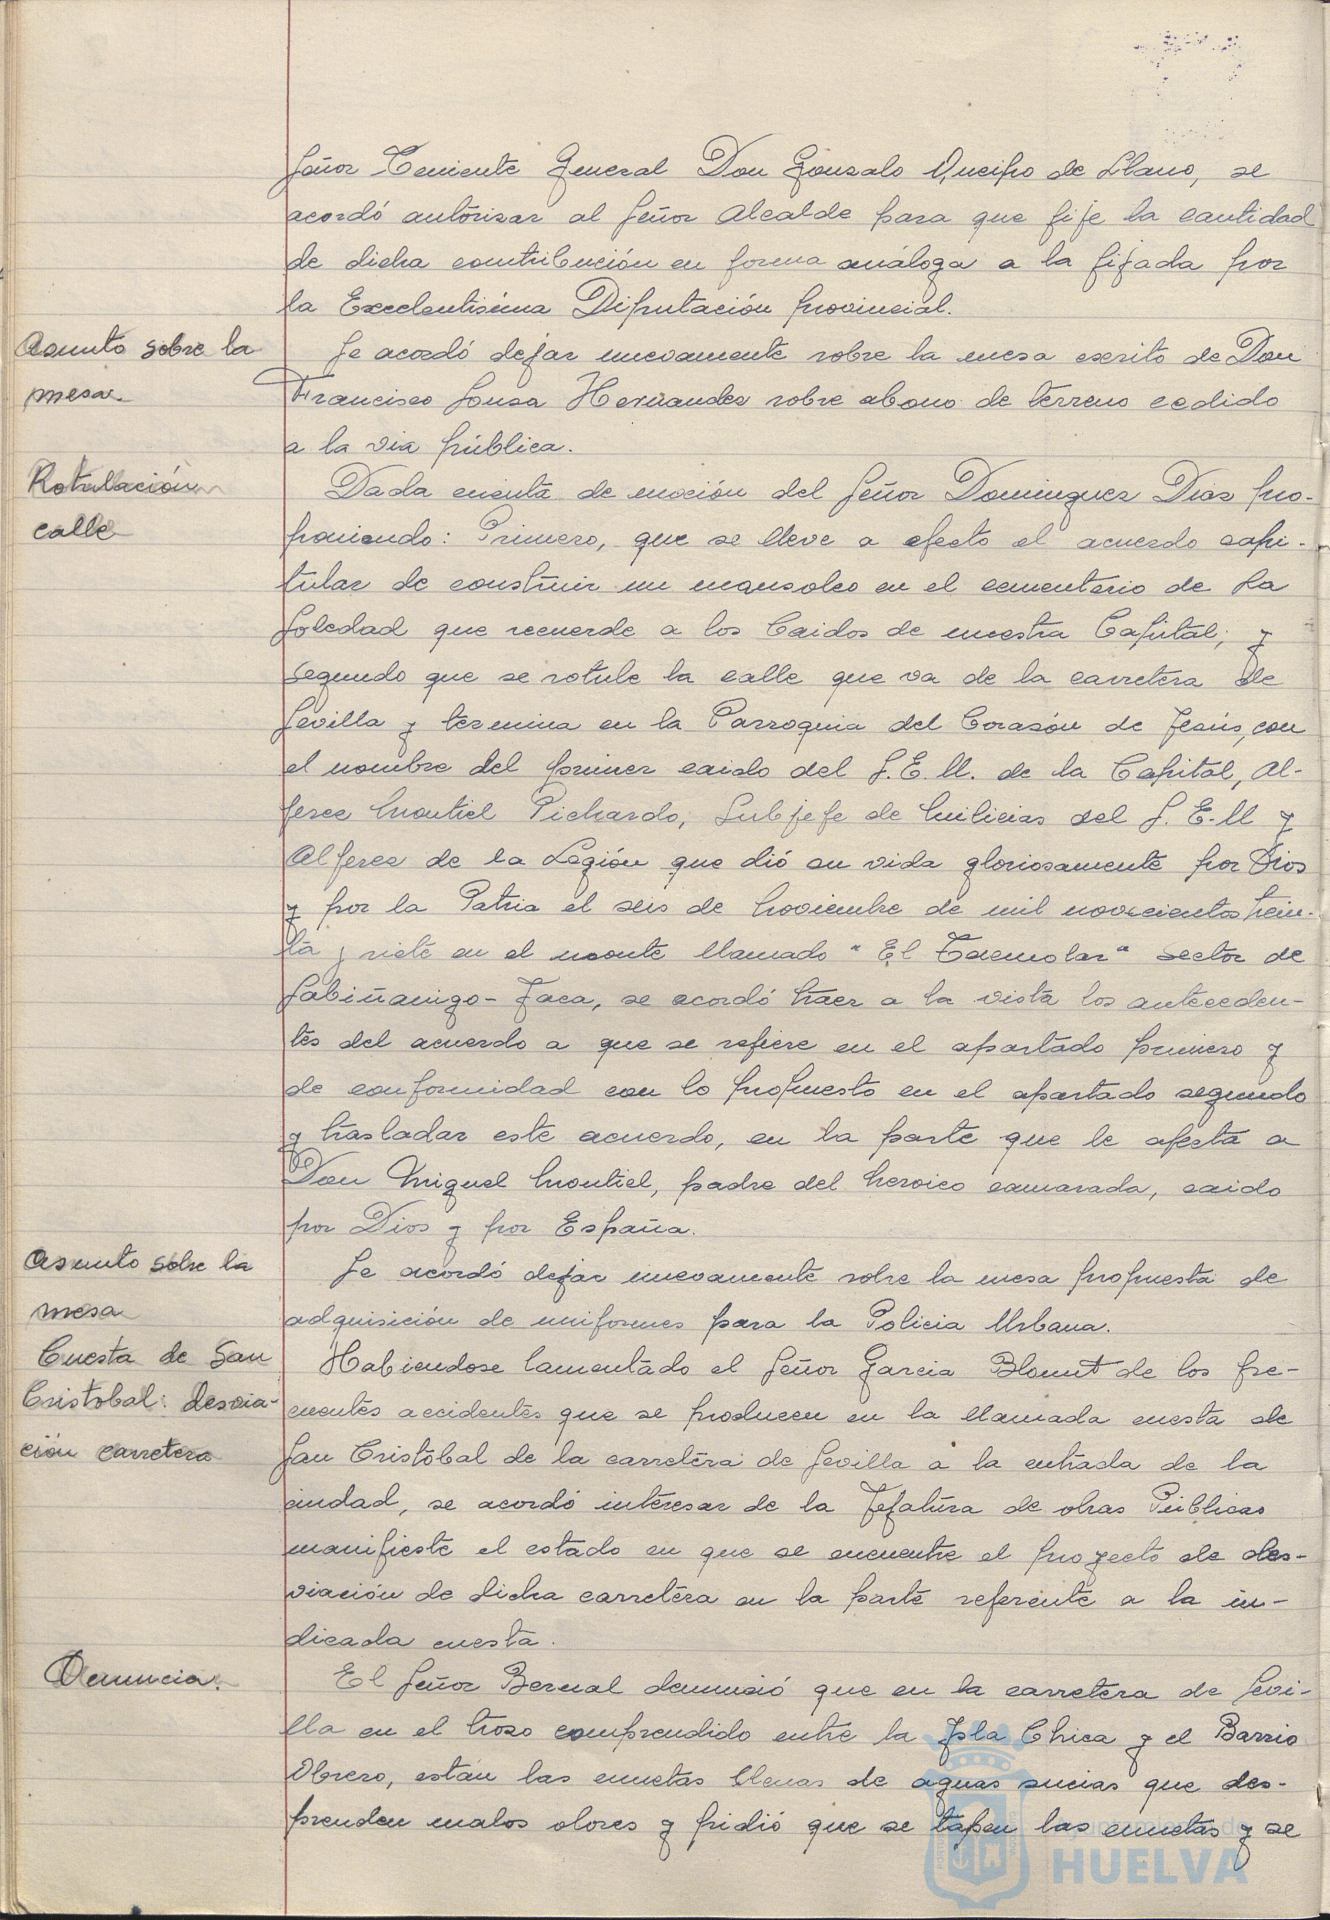 Señor Teniente General Don Gonzalo Queipo de Llano, se
acordó autorizar al Señor Alcalde para que fije la cantidad
de dicha contribución en forma análoga a la fijada por
la Excelentisima Diputación provincial.
Asunto sobre la
mesa.
Se acordó dejar nuevamente sobre la mesa escrito de Don
Francisco Sousa Hernandez sobre abono de terreno cedido
a la via pública.
Rotulación
calle
Dada cuenta de moción del Señor Dominguez Diaz pro-
poniendo: Primero, que se lleve a efecto el acuerdo capi-
tular de construir un mausoleo en el cementerio de La
Soledad que recuerde a los Caidos de nuestra Capital; y
segundo que se rotule la calle que va de la carretera de
Sevilla y termina en la Parroquia del Corazón de Jesús, con
el nombre del primer caido del S.E.U. de la Capital, Al-
ferez Montiel Pichardo, Subjefe de Milicias del S.E.U y
Alferez de la Legión que dió su vida gloriosamente por Dios
y por la Patria el seis de Noviembre de mil novecientos trein-
ta y siete en el monte llamado "El" sector de
Sabiñanigo-Jaca, se acordó traer a la vista los anteceden-
tes del acuerdo a que se refiere en el apartado primero y
de conformidad con lo propuesto en el apartado segundo
y trasladar este acuerdo, en la parte que le afecta a
Don Miguel Montiel, padre del heroico camarada, caido
por Dios y por España.
Asunto sobre la
mesa
Se acordó dejar nuevamente sobre la mesa propuesta de
adquisición de uniformes para la Policia Urbana.
Cuesta de San
Cristobal: desvia-
ción carretera
Habiendose lamentado el Señor Garcia de los fre-
cuentes accidentes que se producen en la llamada cuesta de
San Cristóbal de la carretera de Sevilla a la entrada de la
ciudad, se acordó interesar de la Jefatura de obras Públicas
manifieste el estado en que se encuentre el proyecto de des-
viación de dicha carretera en la parte referente a la in-
dicada cuesta.
Denuncia.
El Señor Bernal denunció que en la carretera de Sevi-
lla en el trozo comprendido entre la Isla Chica y el Barrio
Obrero, están las cunetas llenas de aguas sucias que des-
prenden malos olores y pidió que se tapen las cunetas y se
Ayuntamiento de
HUELVA